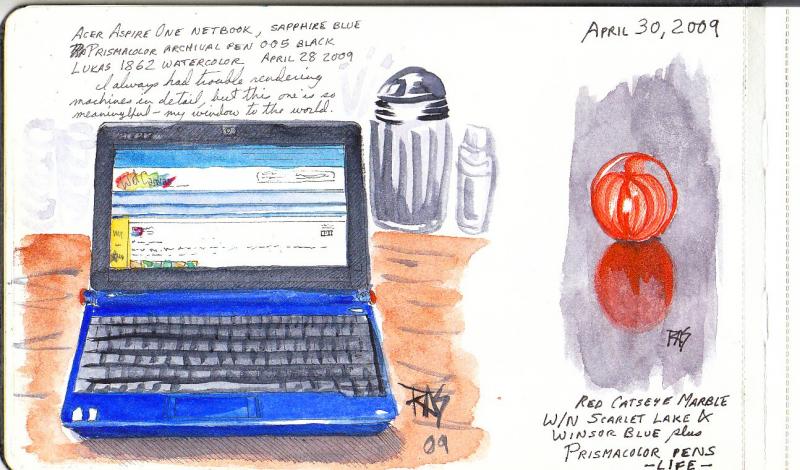 Acer Aspire One netbook, sapphire blue
Prismacolor archival pen 005 black
Lukas 1862 watercolor April 28 2009
I always had trouble rendering
machines in detail, but this one is so
meaningful - my window to the world.
Wet Canvas
RAS
09
April 30, 2009
RAS
Red Catseye Marble
W/N Scarlet Lake &
Winsor Blue plus
Prismacolor pens
-LIFE-